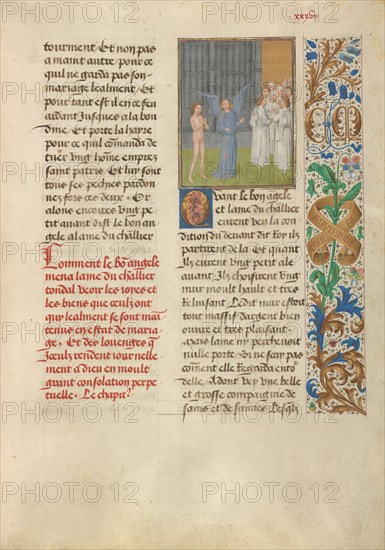 xxxvij
tourment Et non pas
a maint autre pour ce
quil ne garda pas son
mariage lealment Et
pour tant est il en ce feu
ardant Jusques a la bou
dine Et porte la hayre
pour ce quil comanda de
tuer vng home emprez
saint patris Et luy sont
tous ses pechies pardon
nez fors ces deux Or
alons encores vng pe
tit auant dist le bon an
gele a lame du chllier
Comment le bo angele
mena lame du chllier
tondal veoir les ioyes et
les biens que ceulz ont
qui lealment se sont mai
tenus en estat de maria
ge Et des louenges q
Iceulz rendent iournelle
ment a dieu en moult
grant consolation perpe
tuelle Le chapre
Quant le bon angele
et lame du chllier
eurent veu la con
dition du deuant dit Roy ilz
partirent de la Et quant
Ilz eurent vng petit ale
auant Ilz choisirent vng
mur moult hault et tres
Reluisant Ledit mur estoit
tout massif dargent bien
ouure et tres plaisant
Mais lame ny percheuoit
nulle porte Si ne scay pas
coment elle Regarda ento
delle Adont vey vne belle
et grosse compaignie de
sains et de saintes Lesqlz
PHOTO 12